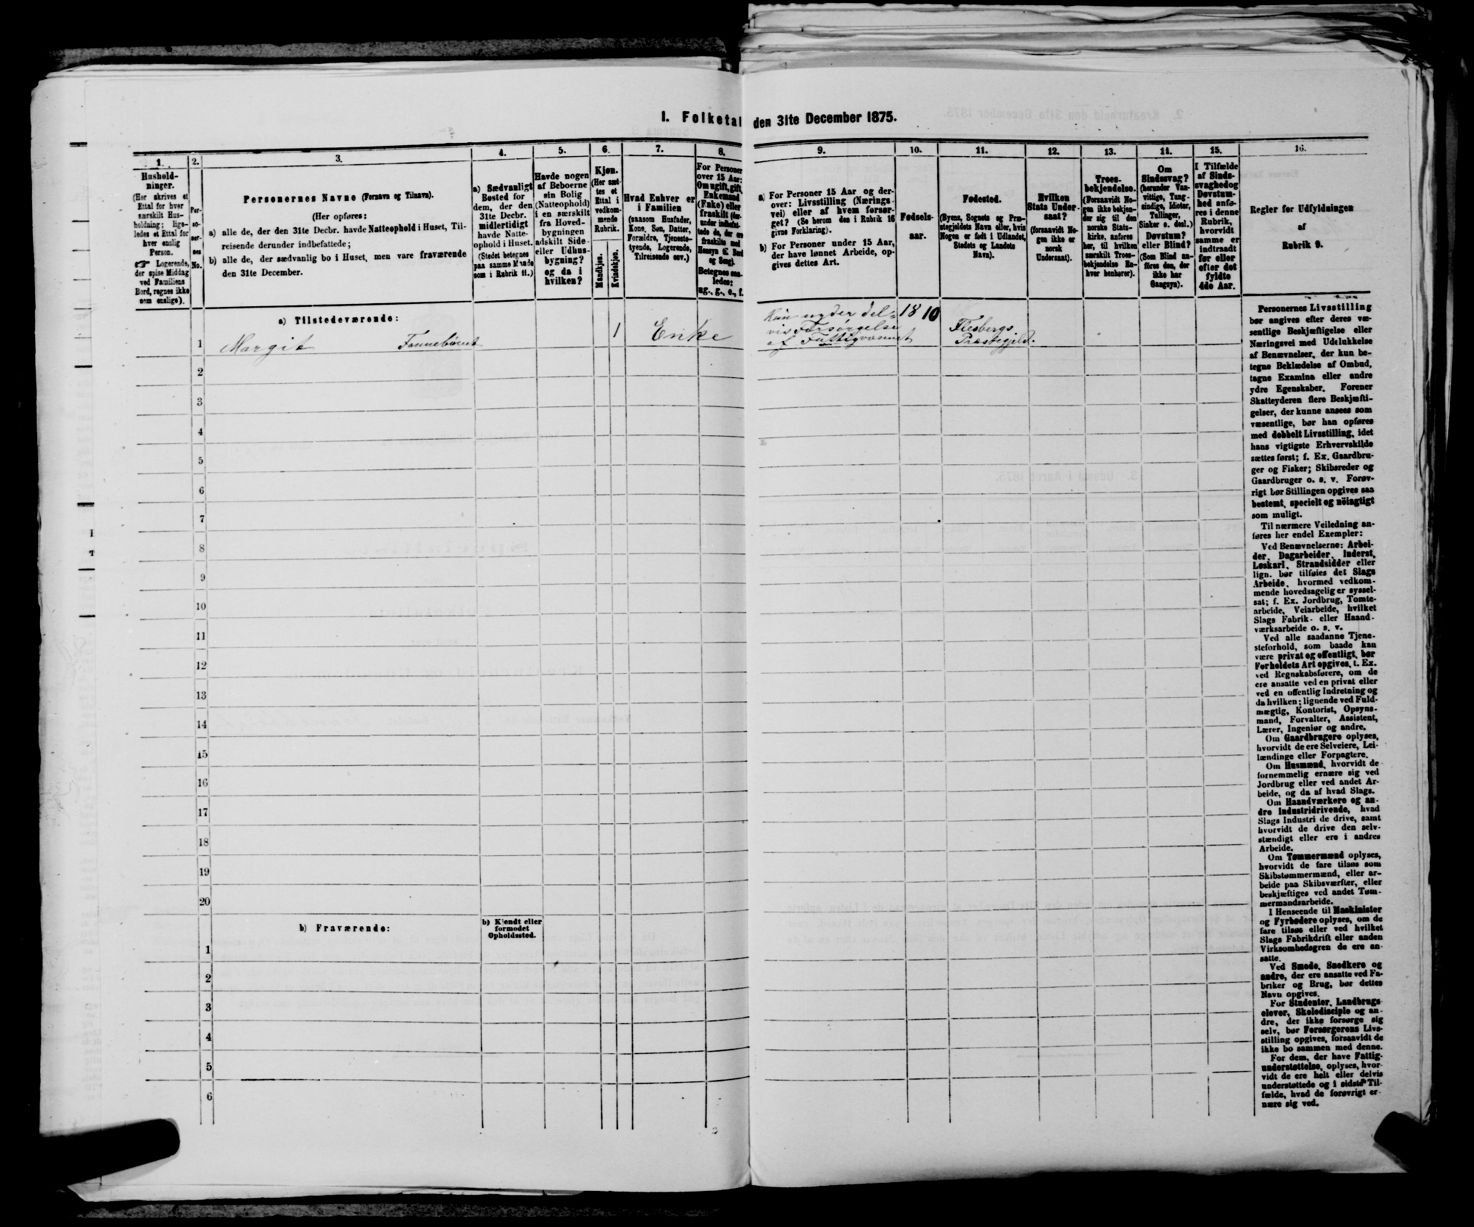 I. Folketal den 31te December 1875.
1.
Hushold-
ninger.
(Her skrives et
Ettal for hver
særskilt Hus-
holdning; lige-
ledes et Ettal for
hver enslig
Person.
Logerende,
der spise Middag
ved Familiens
Bord, regnes ikke
som enslige).
2.
Per-
so-
ner-
nes
No.
3.
Personernes Navne (Fornavn og Tilnavn).
(Her opføres:
a) alle de, der den 31te Decbr. havde Natteophold i Huset, Til-
reisende derunder indbefattede;
b) alle de, der sædvanlig bo i Huset, men vare fraværende
den 31te December.
4.
a) Sædvanligt
Bosted for
dem, der den
31te Decbr.
midlerti­digt
havde Natte-
ophold i Huset.
(Stedet betegnes
paa samme Maade
som i Rubrik 11.)
5.
Havde nogen
af Beboerne
sin Bolig
(Natteophold)
i en særskilt
fra Hoved-
bygningen
adskilt Side-
eller Udhus-
bygning?
og da i
hvilken?
6.
Kjøn.
(Her sæt-
tes et
Ettal i
vedkom-
mende
Rubrik.
Mandkjøn.
Kvindekjøn.
7.
Hvad Enhver er
i Familien
(saasom Husfader,
Kone, Søn, Datter,
Forældre, Tjeneste-
tyende, Logerende,
Tilreisende osv.)
8.
For Personer
over 15 Aar:
Om ugift, gift,
Enkemand
(Enke) eller
fraskilt
Betegnes saa-
ledes:
ug., g., e., f.
9.
a) For Personer 15 Aar og der-
over: Livsstilling (Nærings-
vei) eller af hvem forsør-
get? (Se herom den i Rubrik 16
givne Forklaring).
b) For Personer under 15 Aar,
der have lønnet Arbeide, op-
gives dettes Art.
10.
Fødsels-
aar.
11.
Fødested.
(Byens, Sognets og Præ-
stegjeldets Navn eller, hvis
Nogen er født i Udlandet,
Stedets og Landets
Navn).
12.
Hvilken
Stats Under-
saat?
(forsaavidt No-
gen ikke er
norsk
Undersaat).
13.
Troes-
bekjendelse.
(Forsaavidt No-
gen ikke bekjen-
der sig til den
norske Stats-
kirke, anføres
her, til hvilken
særskilt Troes-
bekjendelse En-
hver henhører).
14.
Om
Sindssvag?
(herunder Van-
vittige, Tung-
sindige, Idioter,
Tullinger,
Sinker o. desl.)
Døvstum?
eller Blind?
(Som Blind an-
føres den, der
ikke har
Gangsyn).
15.
I Tilfælde
af Sinds-
svaghed og
Døvstum-
hed anfø-
res i denne
Rubrik,
hvorvidt
samme er
indtraadt
før eller
efter det
fyldte
4de Aar.
16.
Regler for Udfyldningen
af
Rubrik 9.
a) Tilstedeværende:
1 Margit Fannebäcnt 1 Enke
Kun under del-
vis Forsørgelse
af Fattigvæsenet
1810
Flesbergs
Præstegjeld.
2
3
4
5
6
7
8
9
10
11
12
13
14
15
16
17
18
19
20
b) Fraværende:
b) Kjendt eller
formodet
Opholdssted.
1
2
3
4
5
6
Personernes Livsstilling
bør angives efter deres væ-
sentlige Beskjæftigelse eller
Næringsvei med Udelukkelse
af Benævnelser, der kun be-
tegne Beklædelse af Ombud,
tagne Examina eller andre
ydre Egenskaber. Forener
Skatteyderen flere Beskjæfti-
gelser, der kunne ansees som
væsentlige, bør han opføres
med dobbelt Livsstilling, idet
hans vigtigste Erhvervskilde
sættes først; f. Ex. Gaardbru-
ger og Fisker; Skibsreder og
Gaardbruger o. s. v. Forøv-
rigt bør Stillingen opgives saa
bestemt, specielt og nøiagtigt
som muligt.
Til nærmere Veiledning an-
føres her endel Exempler:
Ved Benævnelserne: Arbei-
der, Dagarbeider, Inderst,
Løskarl, Strandsidder eller
lign. bør tilføies det Slags
Arbeide, hvormed vedkom-
mende hovedsagelig er syssel-
sat; f. Ex. Jordbrug, Tomte-
arbeide, Veiarbeide, hvilket
Slags Fabrik- eller Haand-
værksarbeide o. s. v.
Ved alle saadanne Tjene-
steforhold, som baade kan
være privat og offentligt, bør
Forholdets Art opgives, t. Ex.
ved Regnskabsførere, om de
ere ansatte ved en privat eller
ved en offentlig Indretning og
da hvilken; lignende ved Fuld-
mægtig, Kontorist, Opsyns-
mand, Forvalter, Assistent,
Lærer, Ingeniør og andre.
Om Gaardbrugere oplyses,
hvorvidt de ere Selveiere, Lei-
lændinge eller Forpagtere.
Om Husmænd, hvorvidt de
fornemmelig ernære sig ved
Jordbrug eller ved andet Ar-
beide, og da af hvad Slags.
Om Haandværkere og an-
dre Industridrivende, hvad
Slags Industri de drive, samt
hvorvidt de drive den selv-
stændigt eller ere i andres
Arbeide.
Om Tømmermænd oplyses,
hvorvidt de fare tilsøs som
Skibstømmermænd, eller ar-
beide paa Skibsværfter, eller
beskjæftiges ved andet Tøm-
mermandsarbeide.
I Henseende til Maskinister
og Fyrbødere oplyses, om de
fare tilsøs eller ved hvilket
Slags Fabrikdrift eller anden
Virksomhedsgren de ere an-
satte.
Ved Smede, Snedkere og
andre, der ere ansatte ved Fa-
briker og Brug, bør dettes
Navn opgives.
For Studenter, Landbrugs-
elever, Skoledisciple og an-
dre, der ikke forsørge sig
selv, bør Forsørgerens Livs-
stilling opgives, forsaavidt de
ikke bo sammen med denne.
For dem, der have Fattig-
understøttelse, oplyses, hvor-
vidt de ere helt eller delvis
understøttede og i sidste Til-
fælde, hvad de forøvrigt er-
nære sig ved.